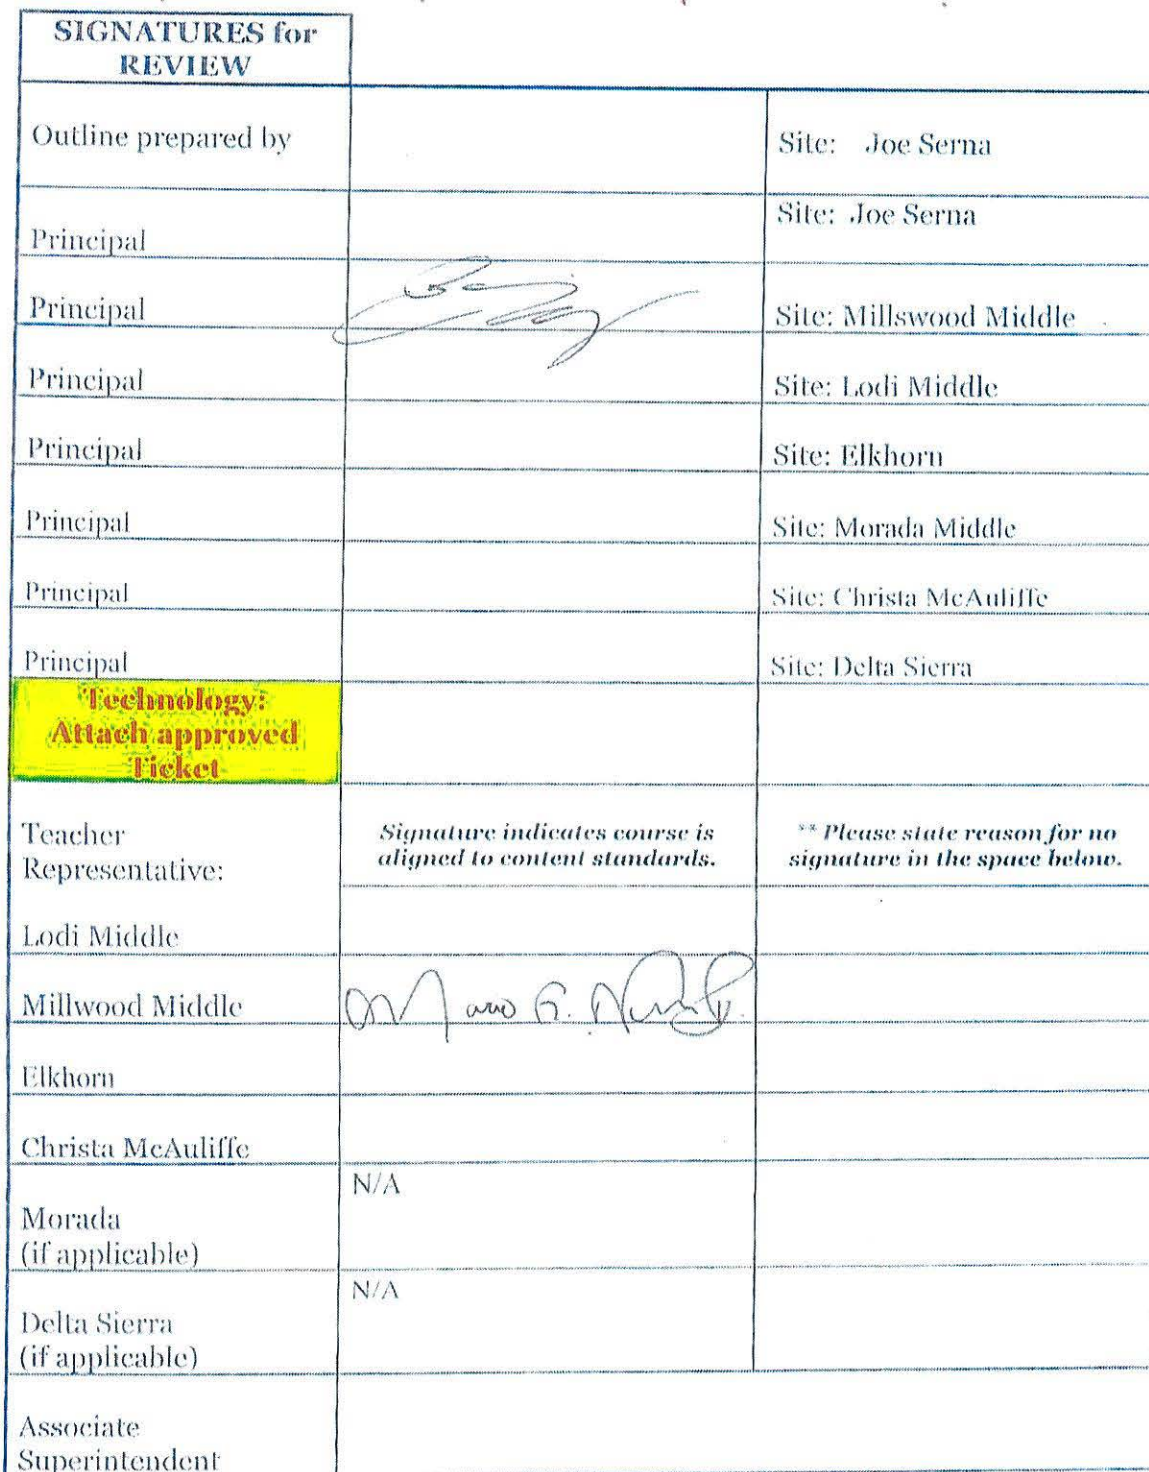 SIGNATURES for
REVIEW
Outline prepared by
Site: Joe Serna
Principal
Site: Joe Serna
Principal
Site: Millswood Middle
Principal
Site: Lodi Middle
Principal
Site: Elkhorn
Principal
Site: Morada Middle
Principal
Site: Christa McAuliffe
Principal
Site: Delta Sierra
Technology:
Attach approved
Ticket
Teacher
Representative:
Signature indicates course is
aligned to content standards.
** Please state reason for no
signature in the space below.
Lodi Middle
Millwood Middle
G.
Elkhorn
Christa McAuliffe
N/A
Morada
(if applicable)
N/A
Delta Sierra
(if applicable)
Associate
Superintendent